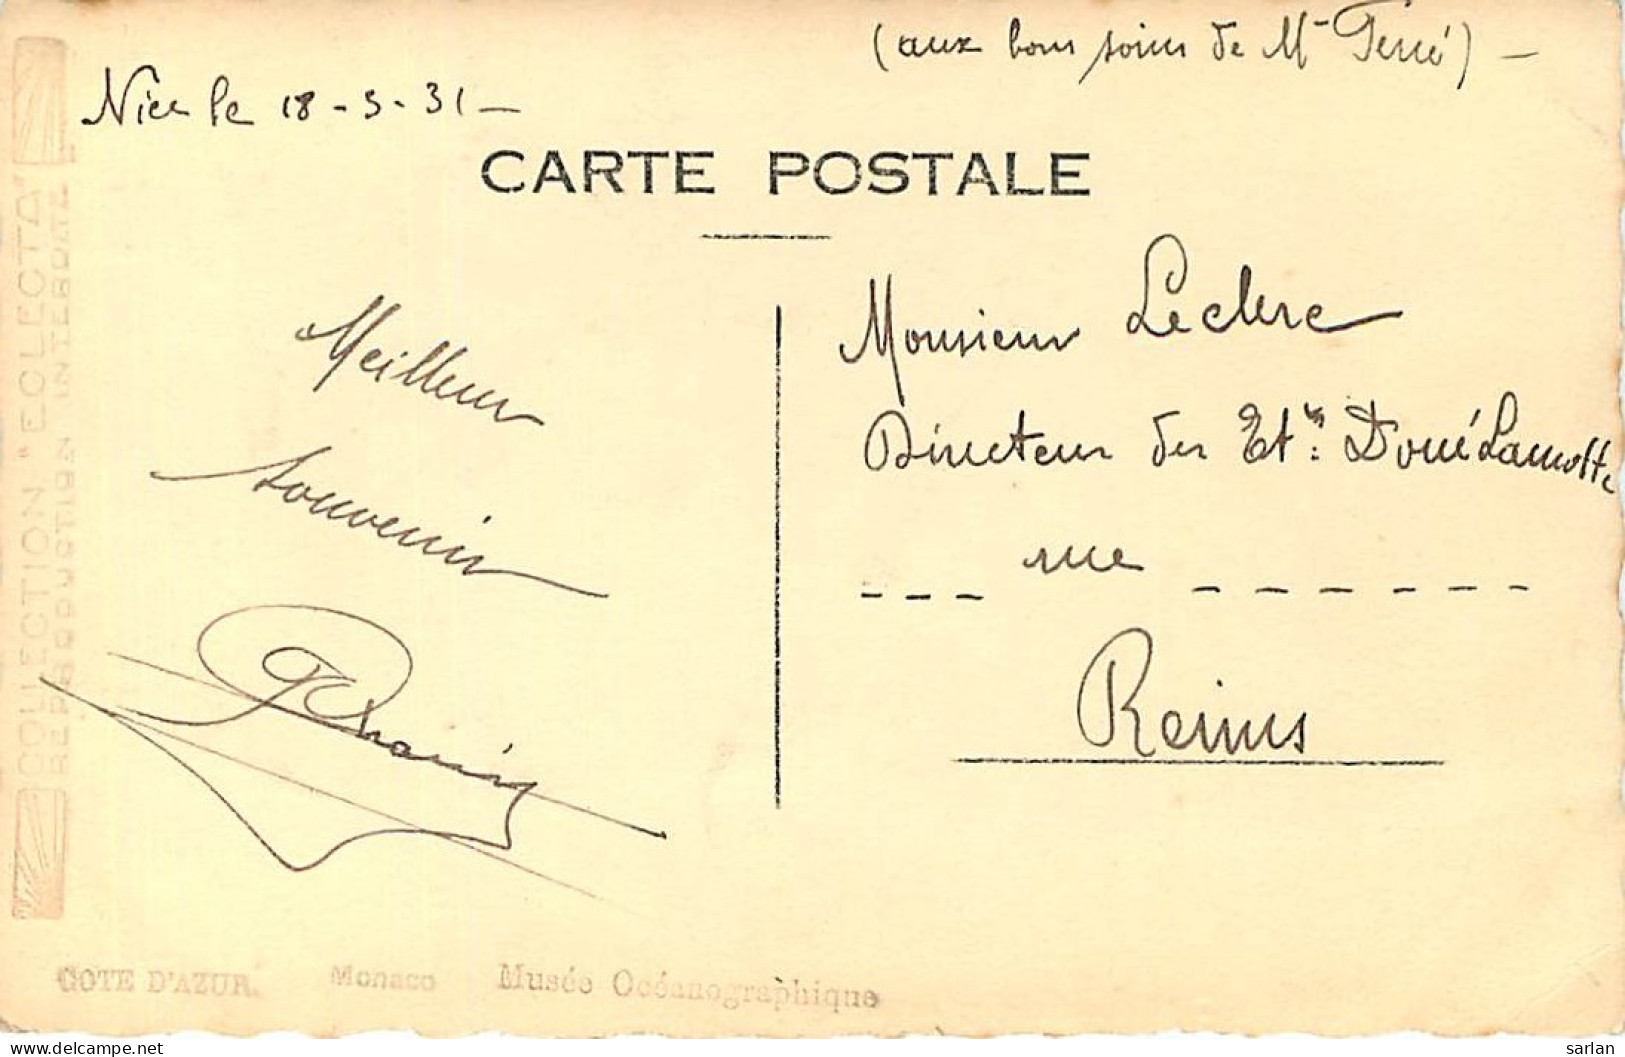 (aux bons soins de Mr Terré) –
Nice le 18 - 5 - 31 –
CARTE POSTALE
Meilleur
souvenir
Monsieur Leclerc
Directeur des Etts Doué Lamotte
--- rue ------
Reims
COLLECTION "ECLECTA"
REPRODUCTION INTERDITE
COTE D'AZUR. Monaco Musée Océanographique
sarlan